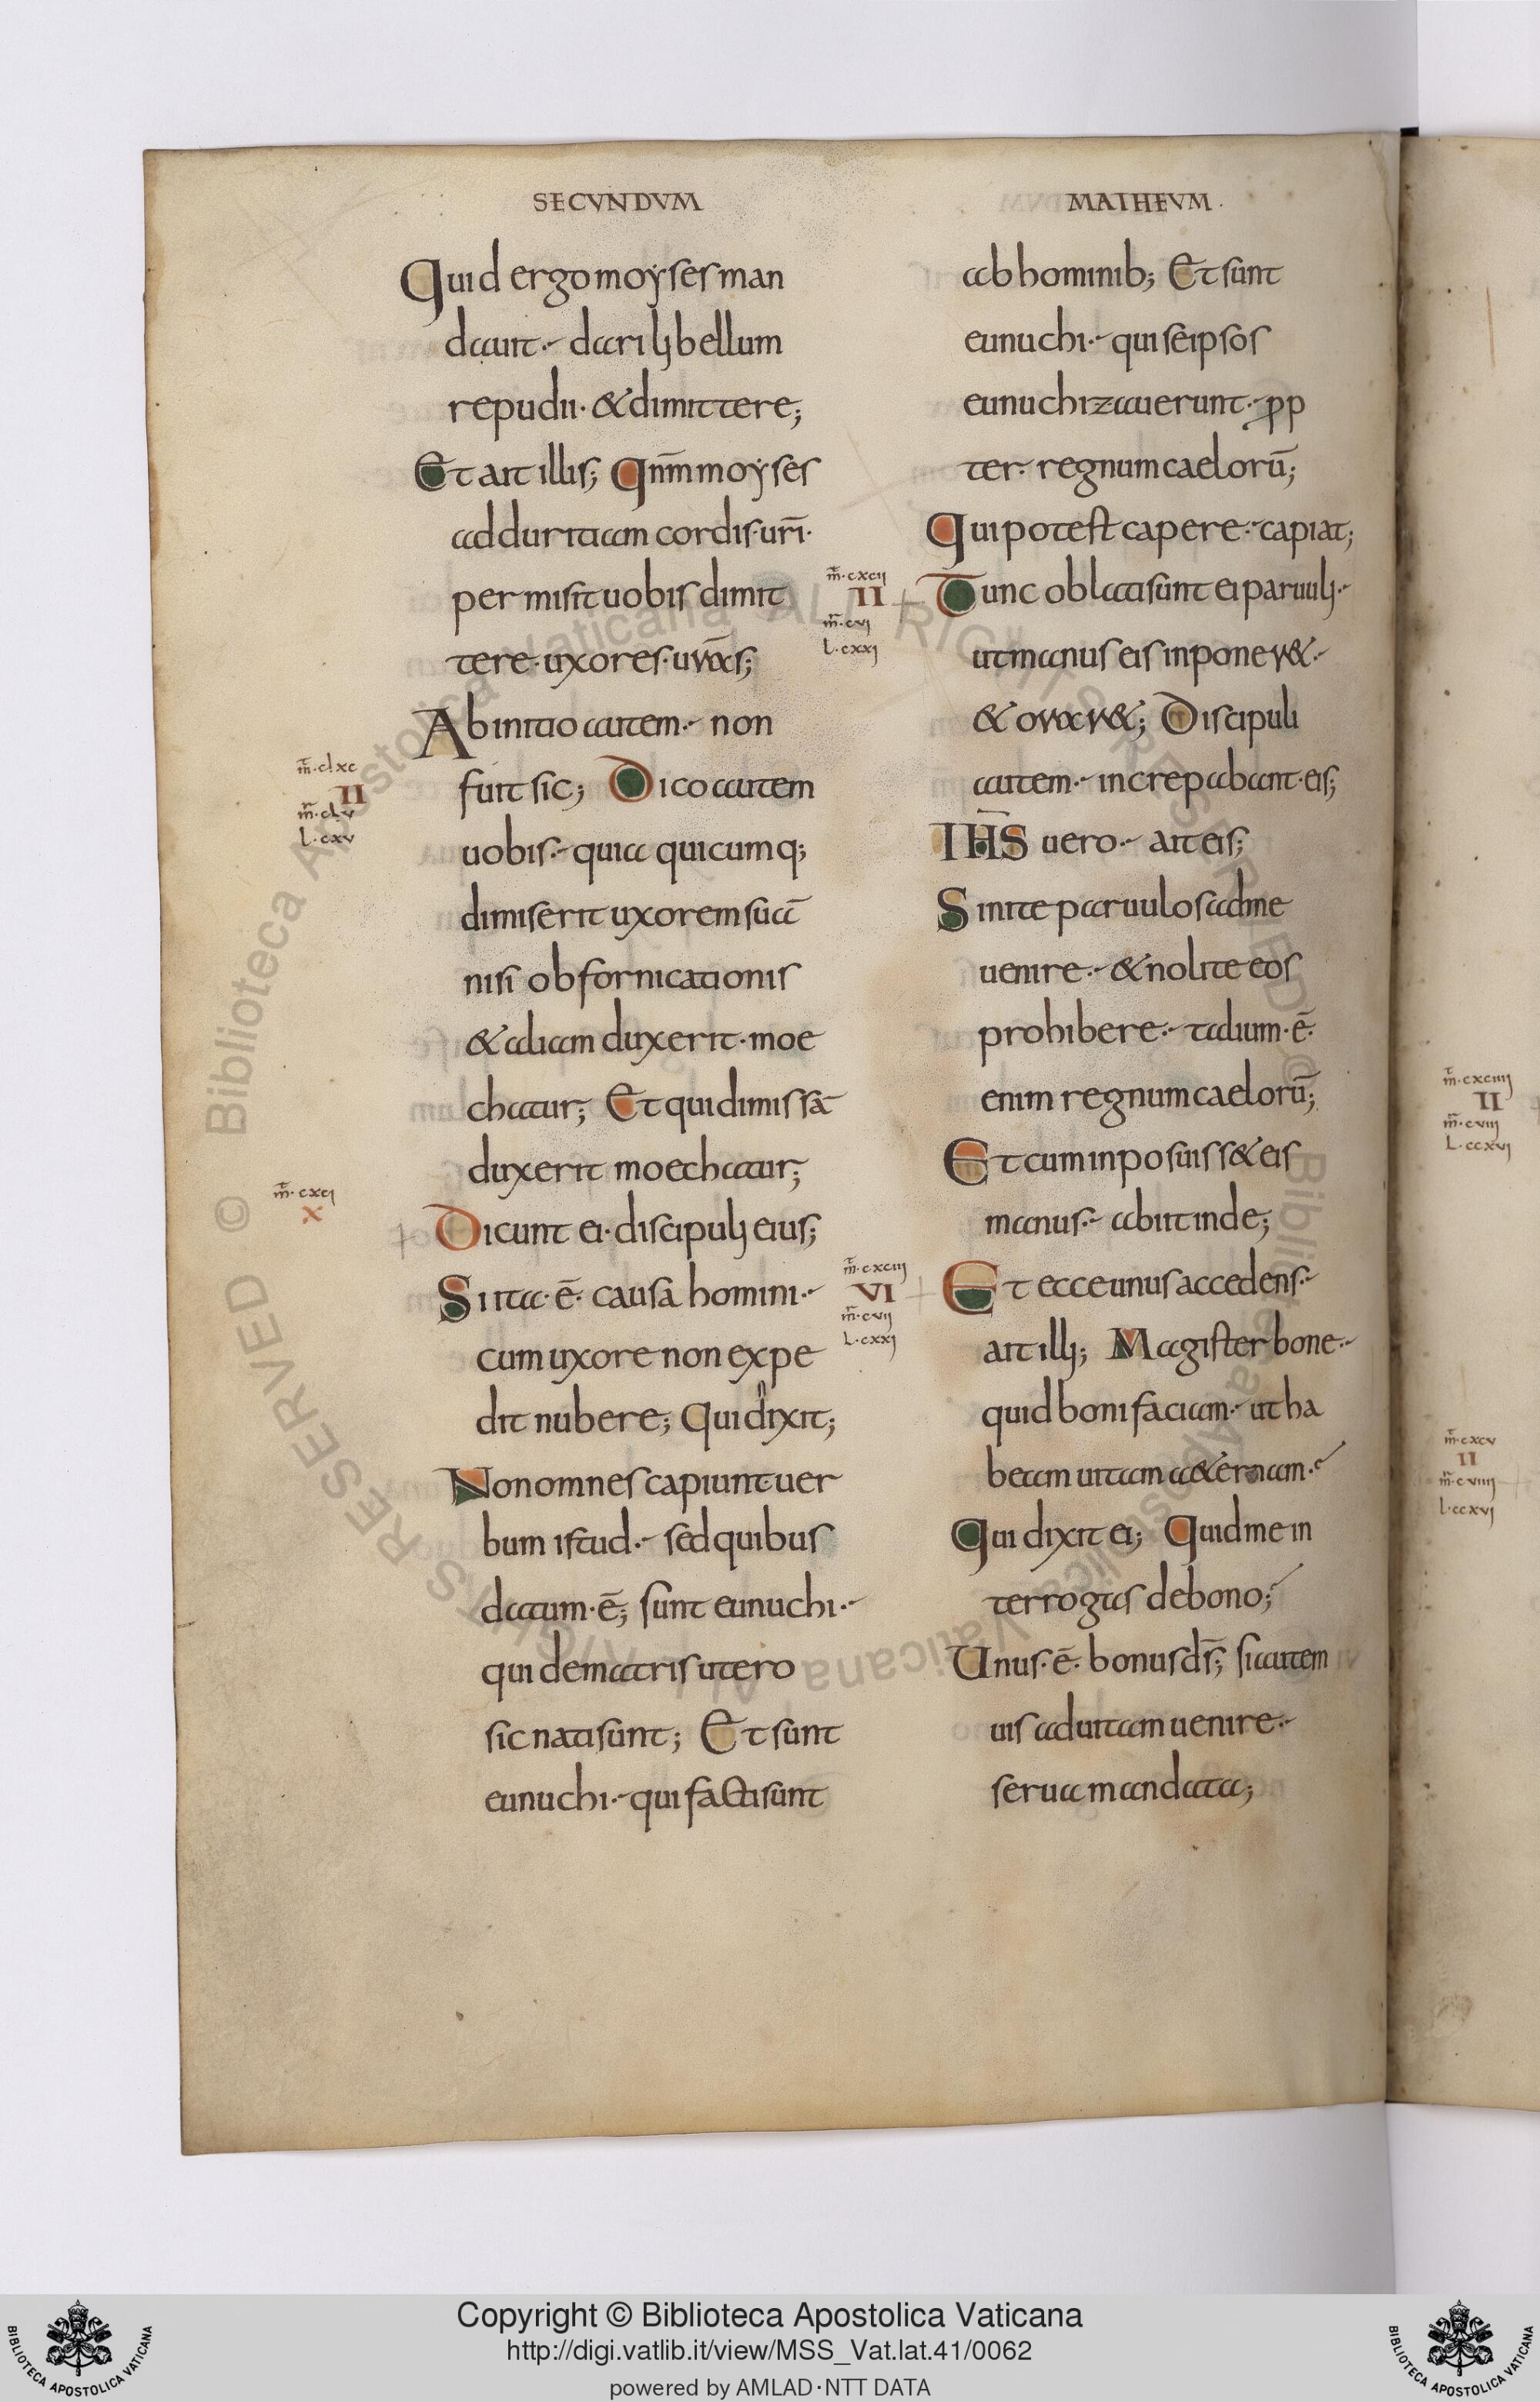 SECUNDUM
Quid ergo moyses man
dauit· dari libellum
repudii· & dimittere;
Et ait illis; Qnm̅ moyses
ad duritiam cordis· uri̅·
permisit uobis dimit
tere· uxores· uras̅;
Ab initio autem· non
fuit sic; Dico autem
uobis· quia quicumq;
dimiserit uxorem sua̅
nisi ob fornicationis
& aliam duxerit· moe
chatur; Et qui dimissa̅
duxerit moechatur;
Dicunt ei· discipuli eius;
Si ita· e̅· causa homini·
cum uxore non expe
dit nubere; Qui dixit;
Non omnes capiunt uer
bum istud· sed quibus
datum· e̅; sunt eunuchi·
qui de matris utero
sic nati sunt; Et sunt
eunuchi· qui facti sunt
m̅·clxc
II
m̅·clv
l·cxv
m̅·cxci
X
MATHEUM·
ab hominib; Et sunt
eunuchi· qui seipsos
eunuchizauerunt· pp
ter· regnum caeloru̅;
Qui potest capere· capiat;
Tunc oblati sunt ei paruuli·
ut manus eis inponer&·
& orar&; Discipuli
autem· increpabant· eis;
IHS̅ uero· ait eis;
Sinite paruulos ad me
uenire· & nolite eos
prohibere· talium· e̅·
enim regnum caeloru̅;
Et cum inposuiss& eis
manus· abiit inde;
Et ecce unus accedens·
ait illi; Magister bone·
quid boni faciam· ut ha
beam uitam a&ernam·
Qui dixit ei; Quid me in
terrogas de bono;
Unus· e̅· bonus ds̅; si autem
uis ad uitam uenire·
serua mandata;
m̅·cxcii
II
m̅·cvi
l·cxxi
m̅·cxciii
VI
m̅·cvii
l·cxxi
m̅·cxciiii
II
m̅·cviii
l·ccxvi
m̅·cxcv
II
m̅·cviiii
l·ccxvi
© Biblioteca Apostolica Vaticana ALL RIGHTS RESERVED
Copyright © Biblioteca Apostolica Vaticana
http://digi.vatlib.it/view/MSS_Vat.lat.41/0062
powered by AMLAD·NTT DATA
BIBLIOTECA APOSTOLICA VATICANA
BIBLIOTECA APOSTOLICA VATICANA